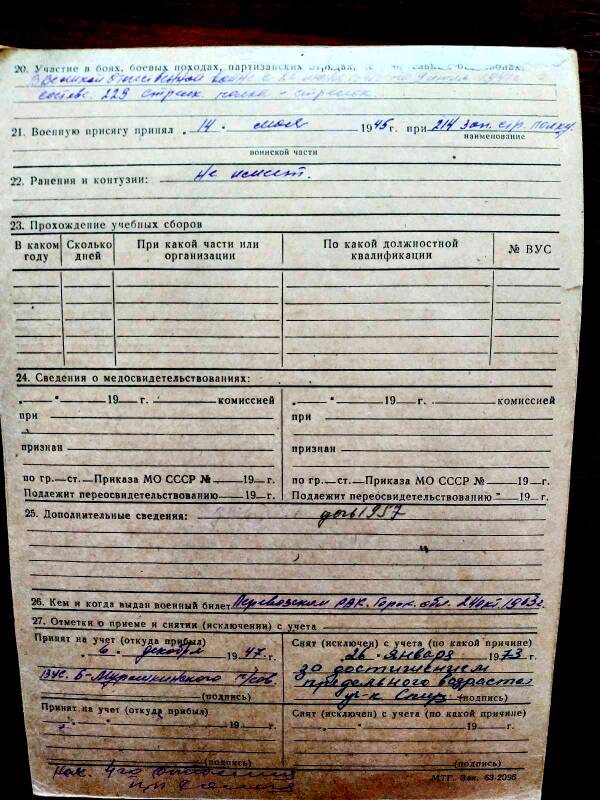 20. Участие в боях, боевых походах, партизанских отрядах,
в Великой Отечественной войне с
составе 229 стрелк полка - стрелок
21. Военную присягу принял „14" мая 1945 г. при 214 зап. стр. полку.
наименование
воинской части
22. Ранения и контузии: Не имеет.
23. Прохождение учебных сборов
В каком году Сколько дней При какой части или организации По какой должностной квалификации № ВУС
24. Сведения о медосвидетельствованиях:
„ " 19 г. комиссией „ " 19 г. комиссией
при при
признан признан
по гр. ст. Приказа МО СССР № 19 г. по гр. ст. Приказа МО СССР № 19 г.
Подлежит переосвидетельствованию 19 г. Подлежит переосвидетельствованию " 19 г.
25. Дополнительные сведения: дочь 1957
26. Кем и когда выдан военный билет Перевозским РВК. Горьк. обл. 24 окт. 1963 г.
27. Отметки о приеме и снятии (исключении) с учета
Принят на учет (откуда прибыл) Снят (исключен) с учета (по какой причине)
„6" декабря 1947 г. 26 января 1973 г.
ВУС. Б-Мурашкинского за достижением
предельного возраста
(подпись) (подпись)
Принят на учет (откуда прибыл) Снят (исключен) с учета (по какой причине)
„ " 19 г. „ " 19 г.
(подпись) (подпись)
Нач. 4-го отделения
МТГ. Зак. 63-2095